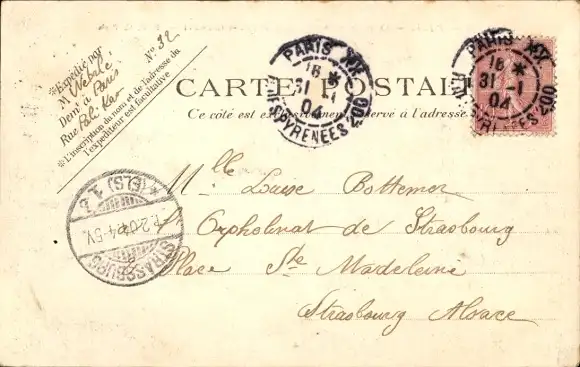 *Expédié par
M Nebalé
Dem't à Paris
Rue Pali-Kao
N° 32
*L'inscription du nom et de l'adresse de
l'expéditeur est facultative
CARTE POSTALE
Ce côté est exclusivement réservé à l'adresse
PARIS XX
18 *
31 -1
04
R. DES PYRENEES 200
PARIS XX
18 *
31 -1
04
PYRENEES 200
STRASSBURG
(ELS) 1
2.04.4-5N.
Mlle Louise Bottemer
Orphelinat de Strasbourg
Place Ste Madeleine
Strasbourg Alsace